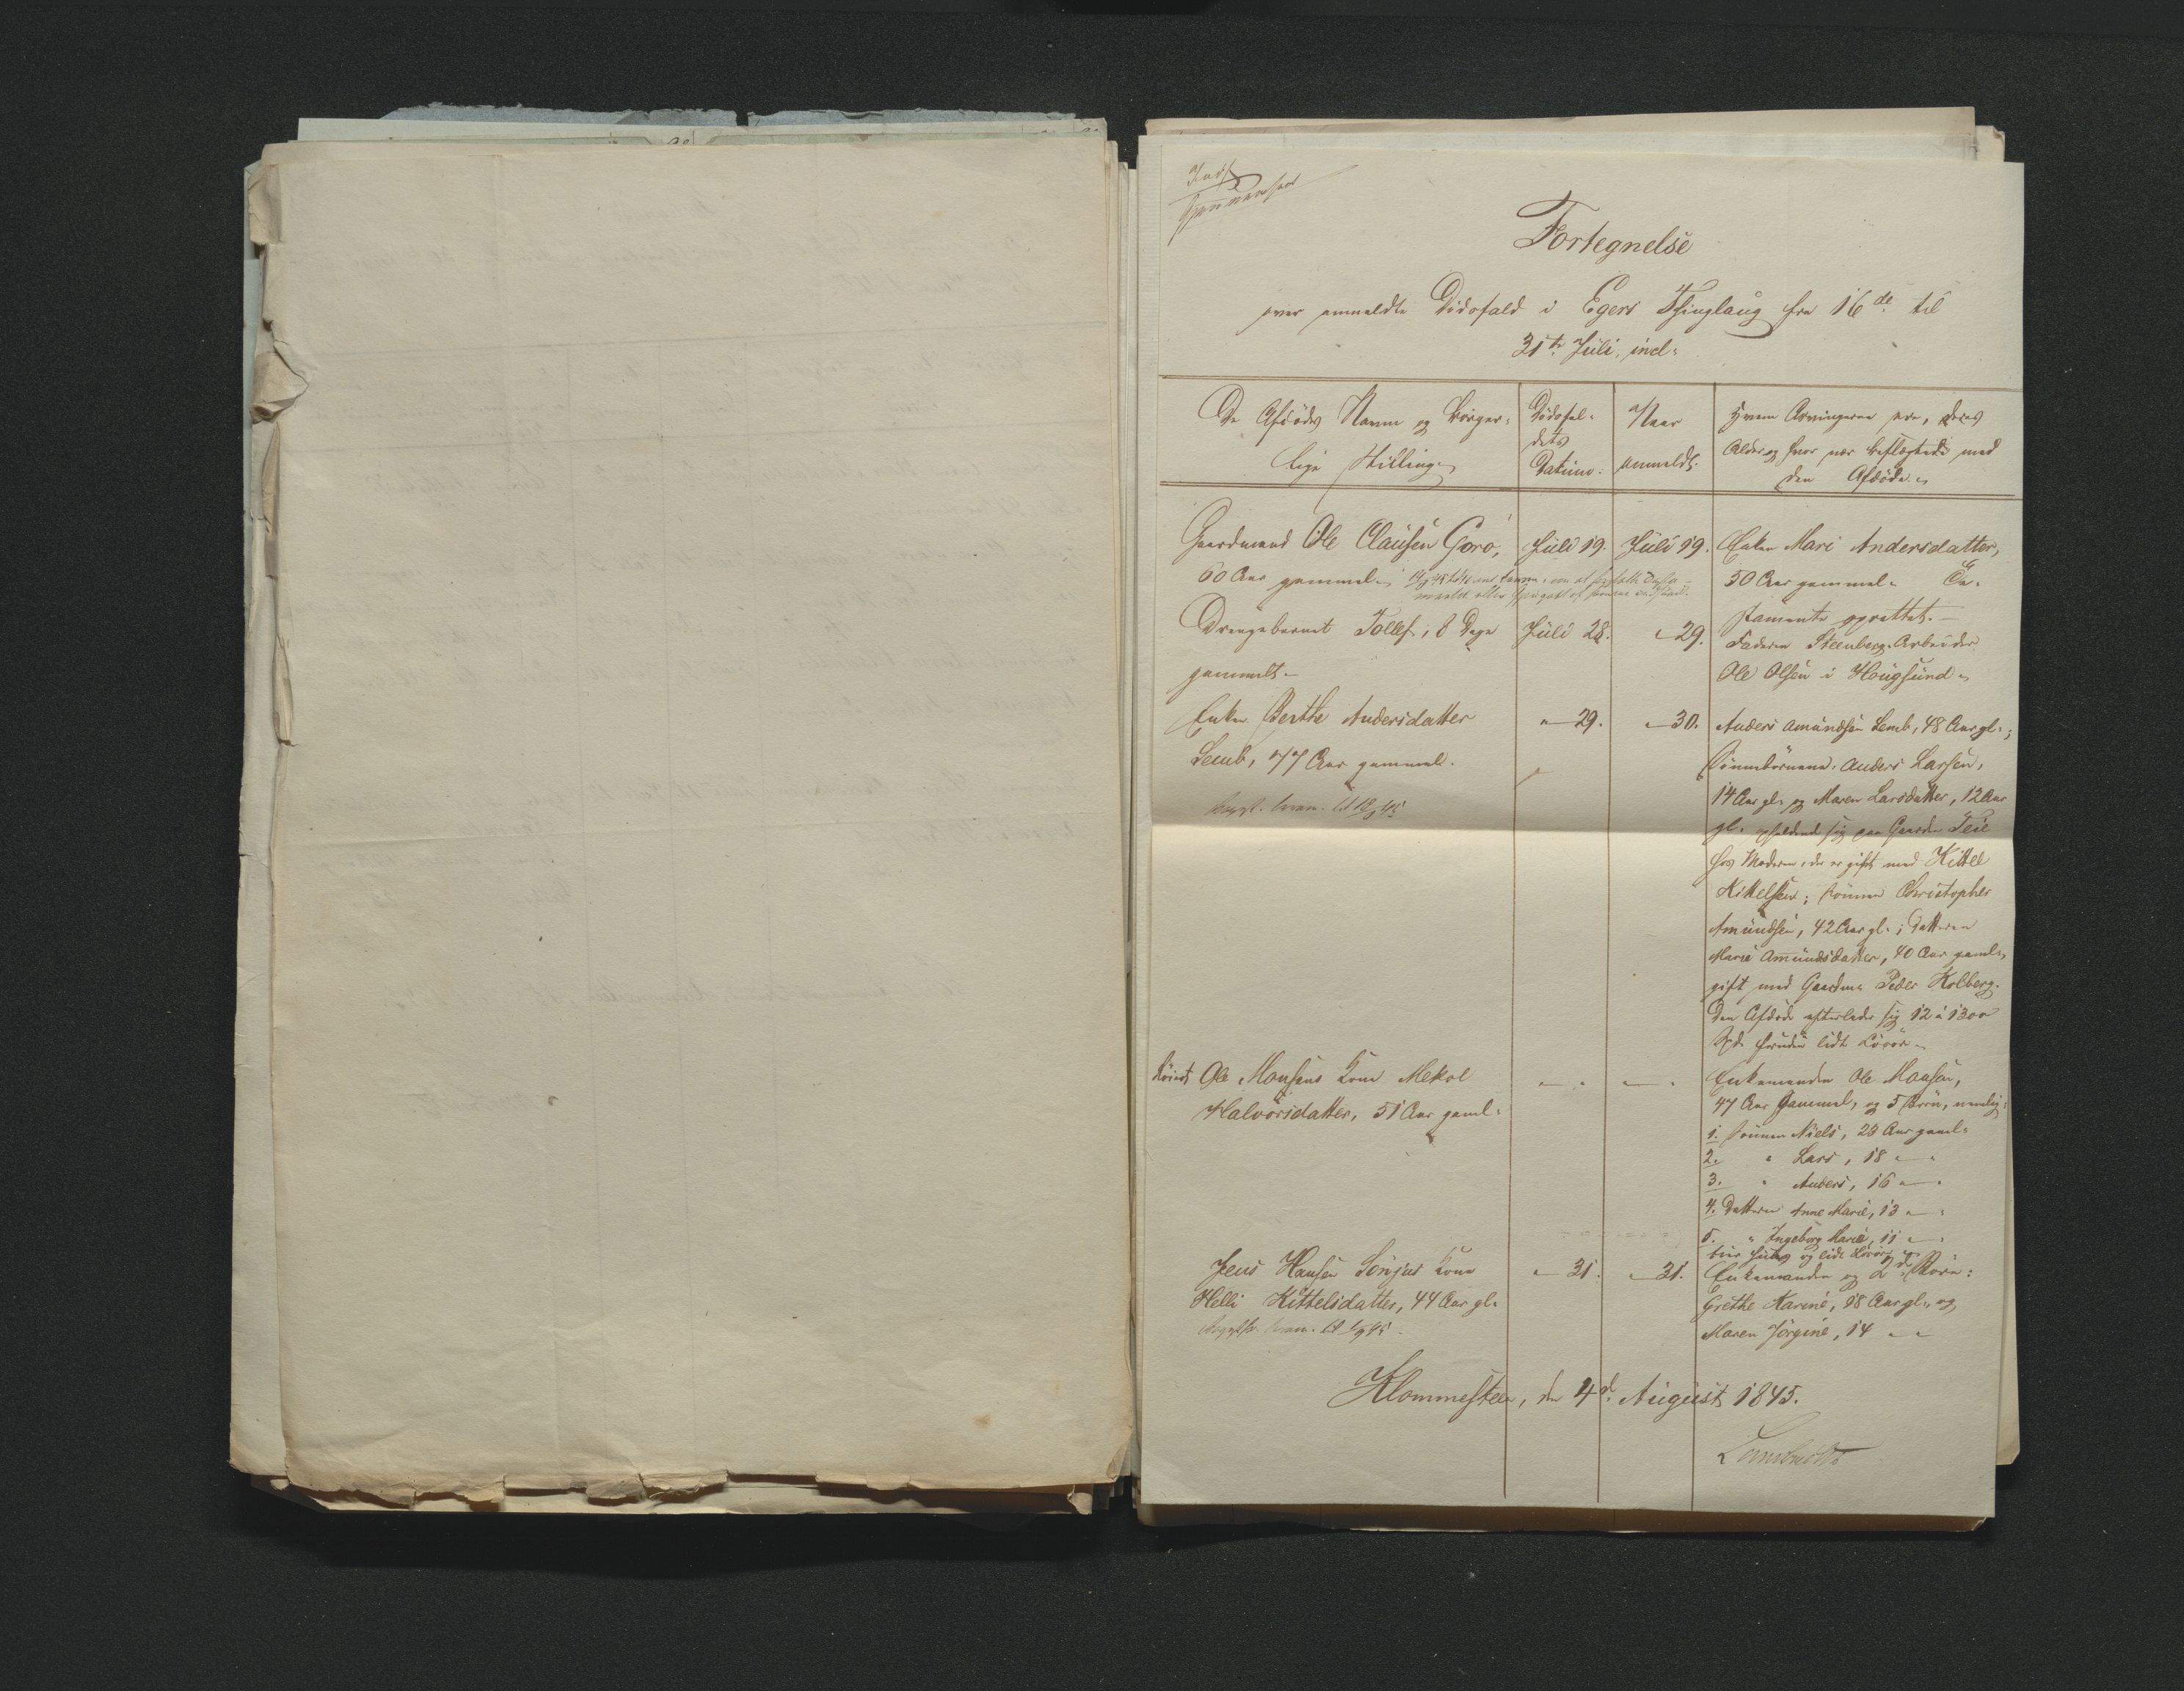 Fortegnelse
over anmeldte Dödsfald i Egers Thinglaug fra 16de til
31te Juli incl:
De Afdödes Navne og borger-
lige Stilling
Dödsfal-
dets
Datum.
Naar
anmeldt.
Hvem Arvingerne ere, deres
Alder og hvor nær beslægtede med
den Afdöde.
Gaardmand Ole Clausen Goro,
60 Aar gammel.
Juli 19.
Juli 19.
Enken Mari Andersdatter,
50 Aar gammel. Te-
stamente oprettet.
Drengebarnet Tollef, 8 Dage
gammelt.
Juli 28.
" 29.
Faderen Steenberg-Arbeider
Ole Olsen i Hougsund
Enken Berthe Andersdatter
Lemb, 77 Aar gammel.
" 29.
" 30.
Anders Amundsen Lemb, 48 Aar gl.;
Sönnebörnene: Anders Larsen,
14 Aar gl. og Maren Larsdatter, 12 Aar
gl. opholdend sig paa Gaarden Teie
hos Moderen, der er gift med Kittel
Kittelsen; sönnen Christopher
Amundsen, 42 Aar gl.; Datteren
Marie Amundsdatter, 40 Aar gaml.,
gift med Gaardm. Peder Kolberg.
Den Afdöde efterlader sig 12 á 1300
Spd. foruden lidt Lösöre
Ole Monsens Kone Mekol
Halvorsdatter, 51 Aar gaml:
" "
" "
Enkemanden Ole Monsen,
47 Aar gammel, og 5 Börn, nemlig:
1. Sönnen Niels, 28 Aar gaml:
2. " Lars, 18 " "
3. " Anders, 16 " "
4. Datteren Anne Marie, 13 " "
5. " Ingeborg Marie, 11 " "
og lidt Lösöre
Jens Hansen Sönjus Kone
Helli Kittelsdatter, 44 Aar gl.
" 31.
" 31.
Enkemanden og 2de Börn:
Grethe Karine, 18 Aar gl., og
Maren Jörgine, 14 " "
Klommesteen, den 4d. August 1845.